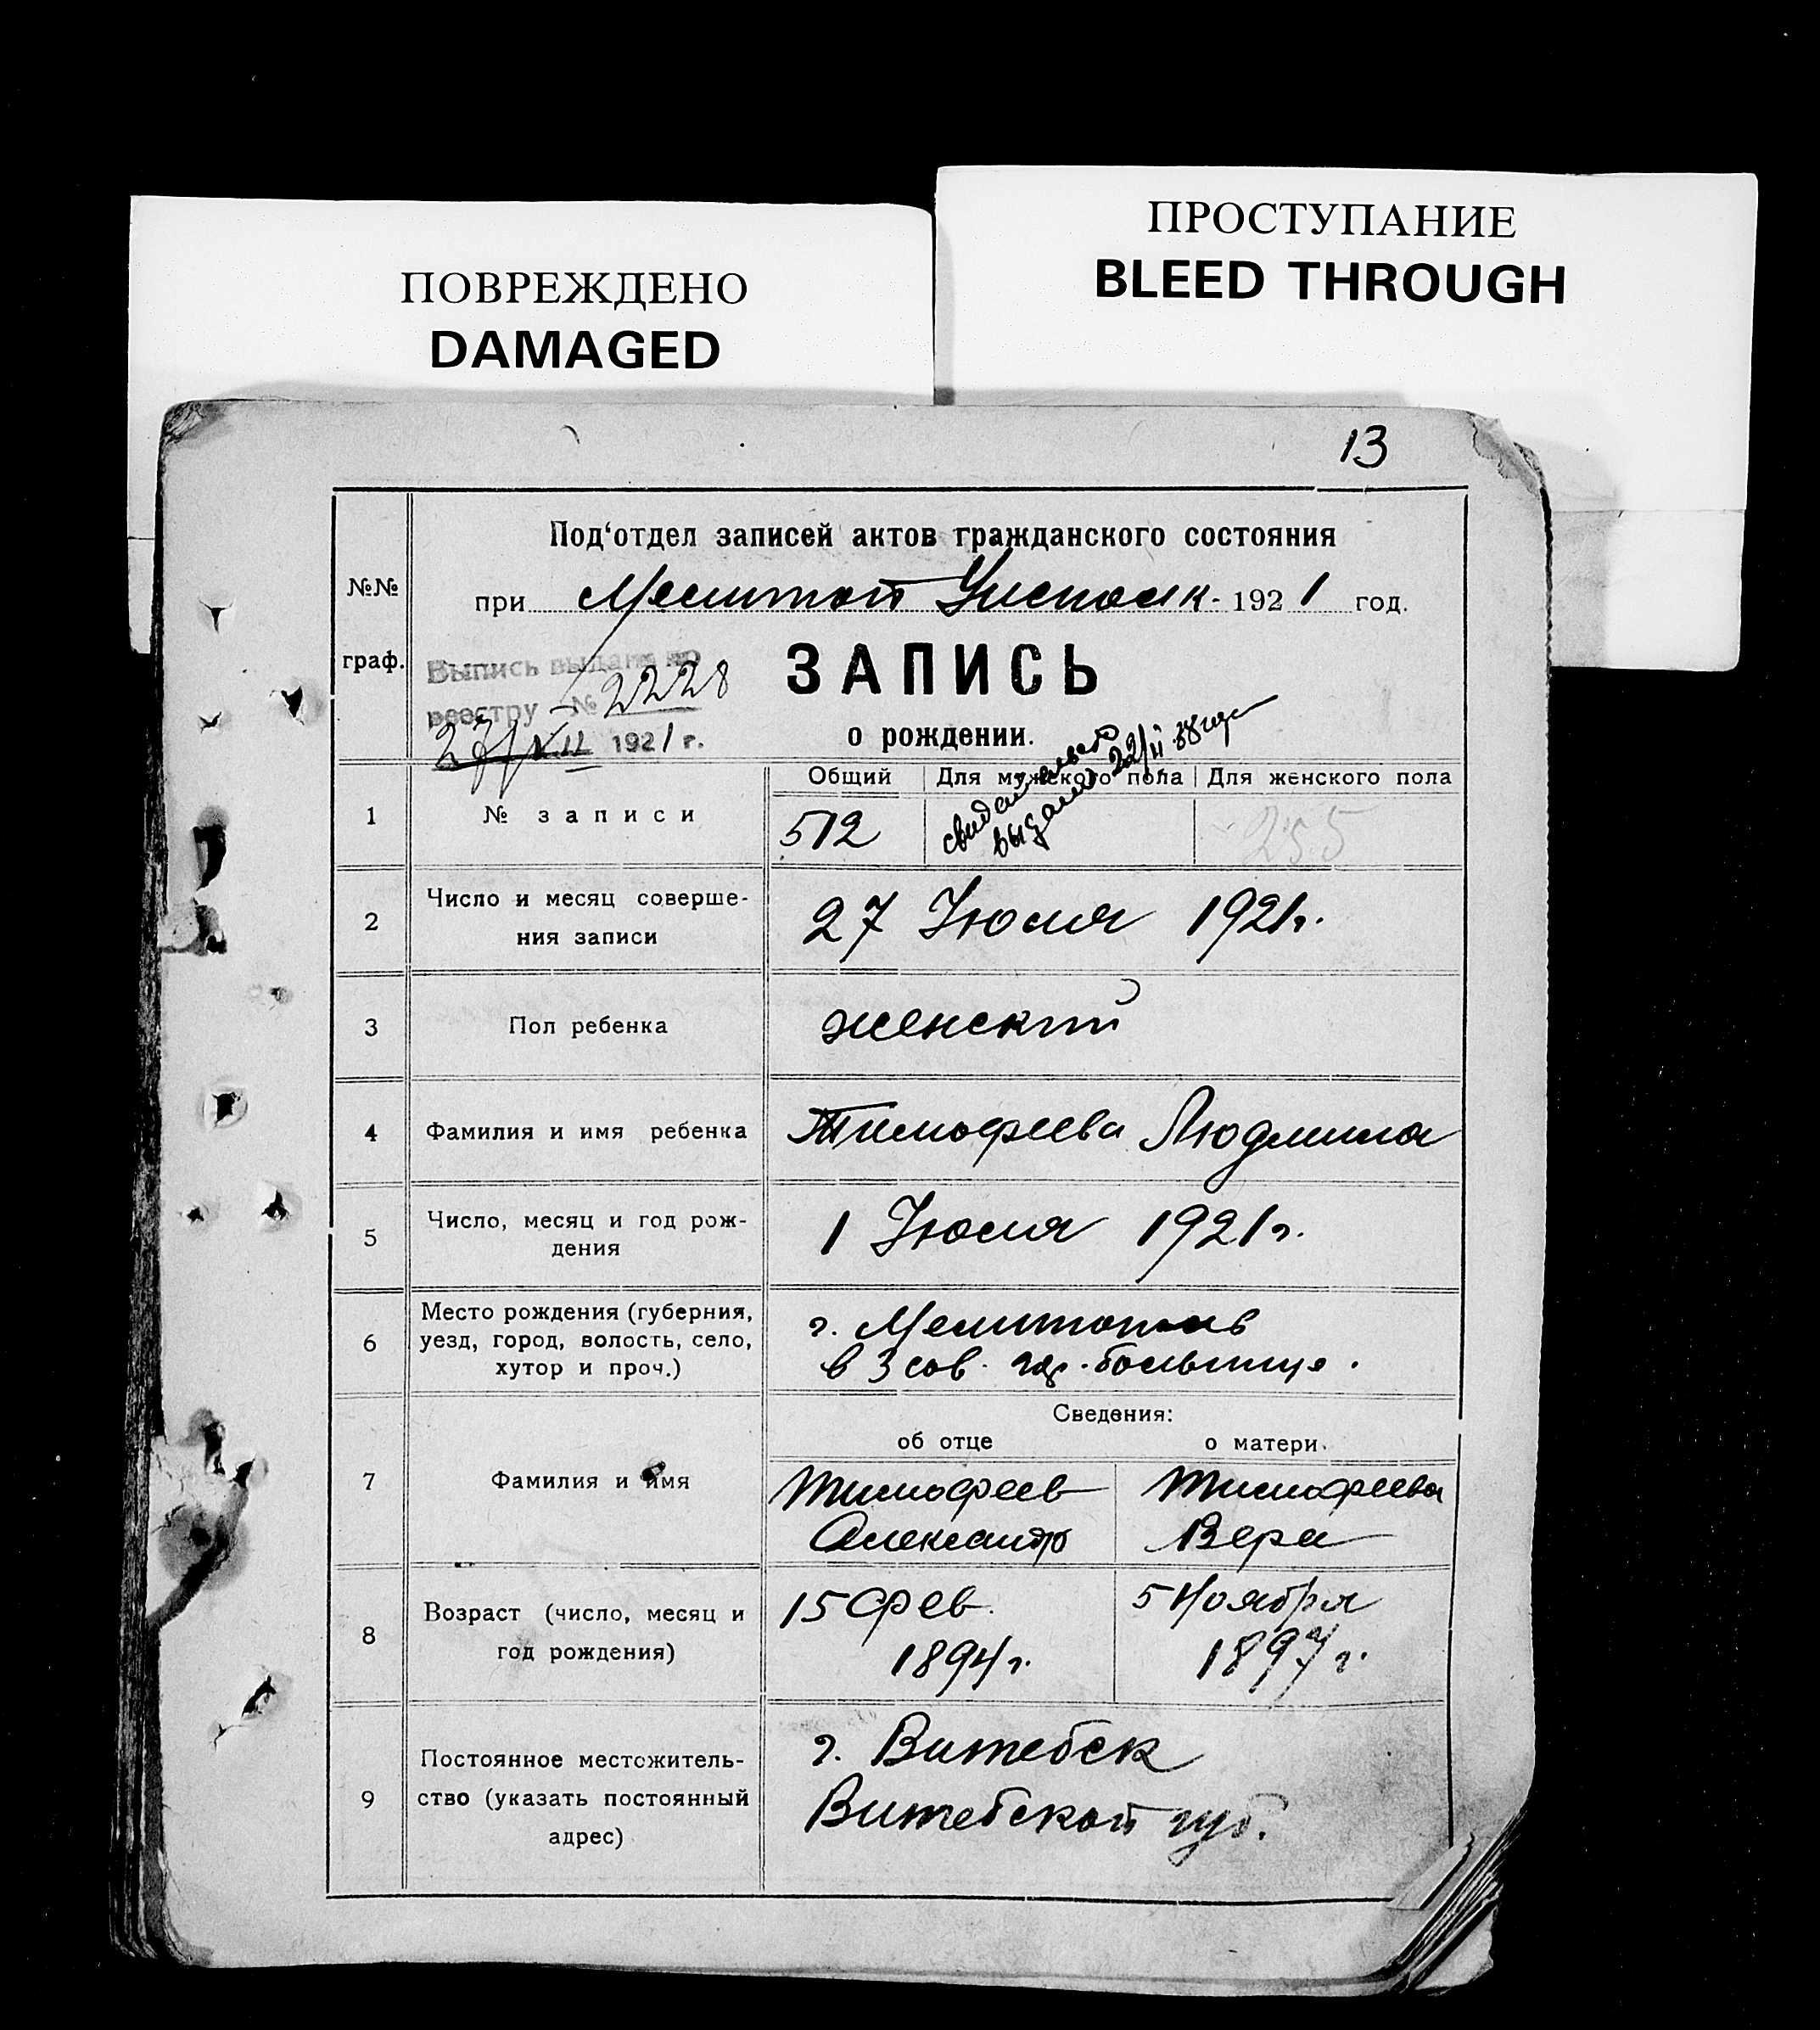 ПОВРЕЖДЕНО
DAMAGED
ПРОСТУПАНИЕ
BLEED THROUGH
13
№№
граф.
Под‘отдел записей актов гражданского состояния
при Мелитоп Уисполк. 1921 год.
Выпись выдана по
реестру № 2228
27/XII 1921 г.
ЗАПИСЬ
о рождении.
свидетельств
выдано 22/II 38 года
1
№ записи
Общий Для мужского пола Для женского пола
512 255
2
Число и месяц соверше-
ния записи
27 Июля 1921г.
3
Пол ребенка
женский
4
Фамилия и имя ребенка
Тимофеева Людмила
5
Число, месяц и год рож-
дения
1 Июля 1921г.
6
Место рождения (губерния,
уезд, город, волость, село,
хутор и проч.)
г. Мелитополь
в 3 сов. больнице.
Сведения:
об отце о матери.
7
Фамилия и имя
Тимофеев
Александр
Тимофеева
Вера
8
Возраст (число, месяц и
год рождения)
15 фев.
1894г.
5 Ноября
1897г.
9
Постоянное местожитель-
ство (указать постоянный
адрес)
г. Витебск
Витебской губ.